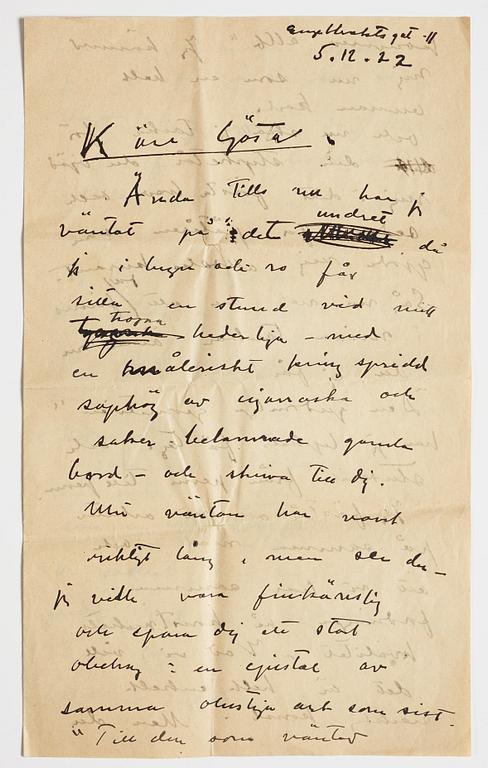 Engelbrektsgat 11
5.12.22
Kära Gösta.
Ända tills nu har jag
väntat på det undret då
jag i lugn och ro får
sitta en stund vid mitt
trogna hederliga – med
en måleriskt kring spridd
sophög av cigarraska och
saker belamrade gamla
bord – och skriva till dig.
Min väntan har varit
riktigt lång, men ser du –
jag ville vara finkänslig
och spara dig ett stort
obehag: en epistel av
samma olustiga art som sist.
"Till den som väntar